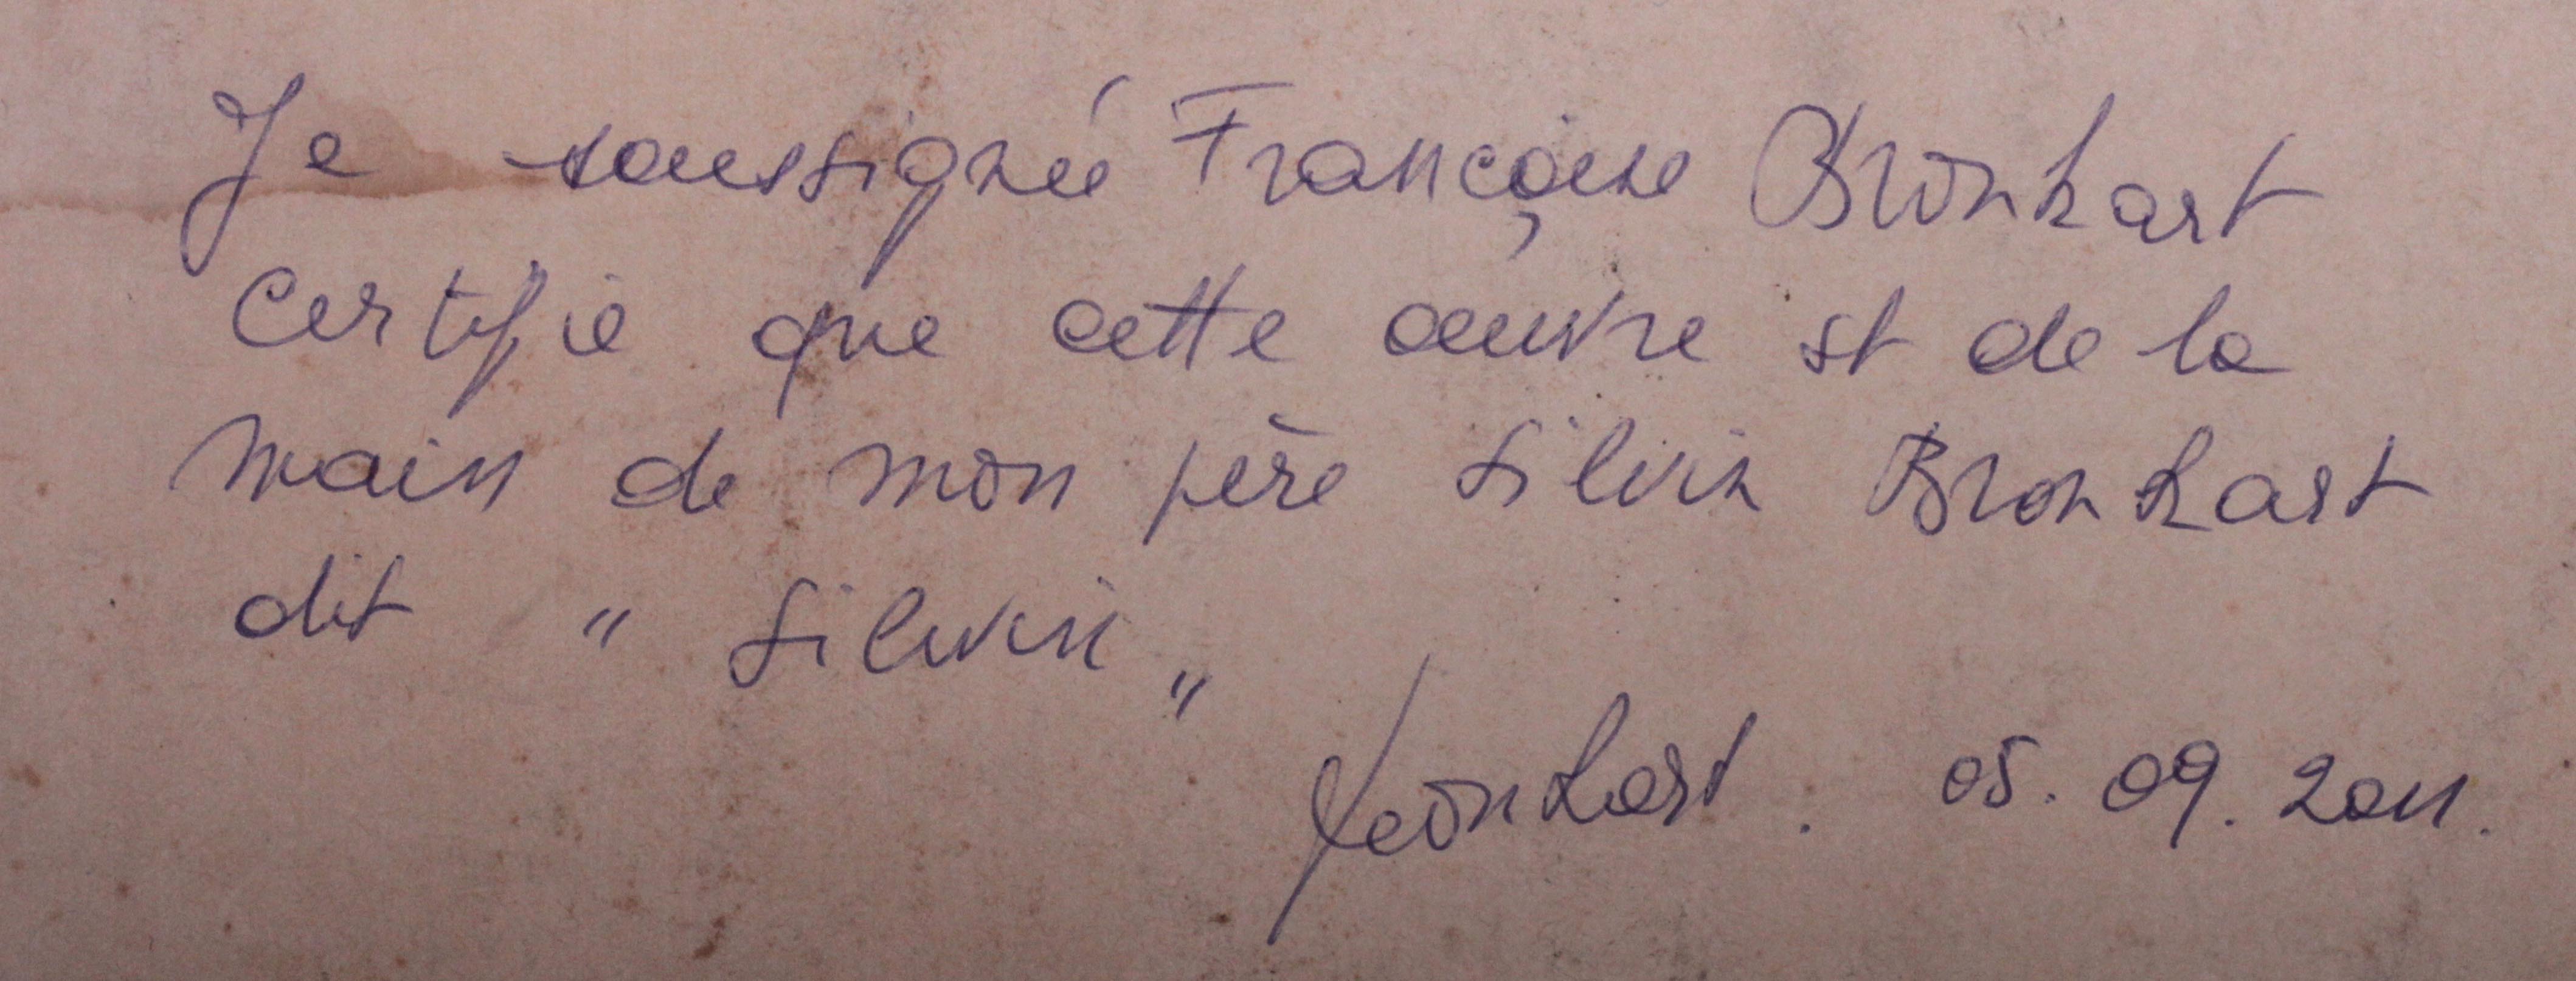 Je soussignée Françoise Bronkart
Certifie que cette œuvre st de la
main de mon père Silvin Bronkart
dit " Silvin "
Bronkart. 05. 09. 2011.